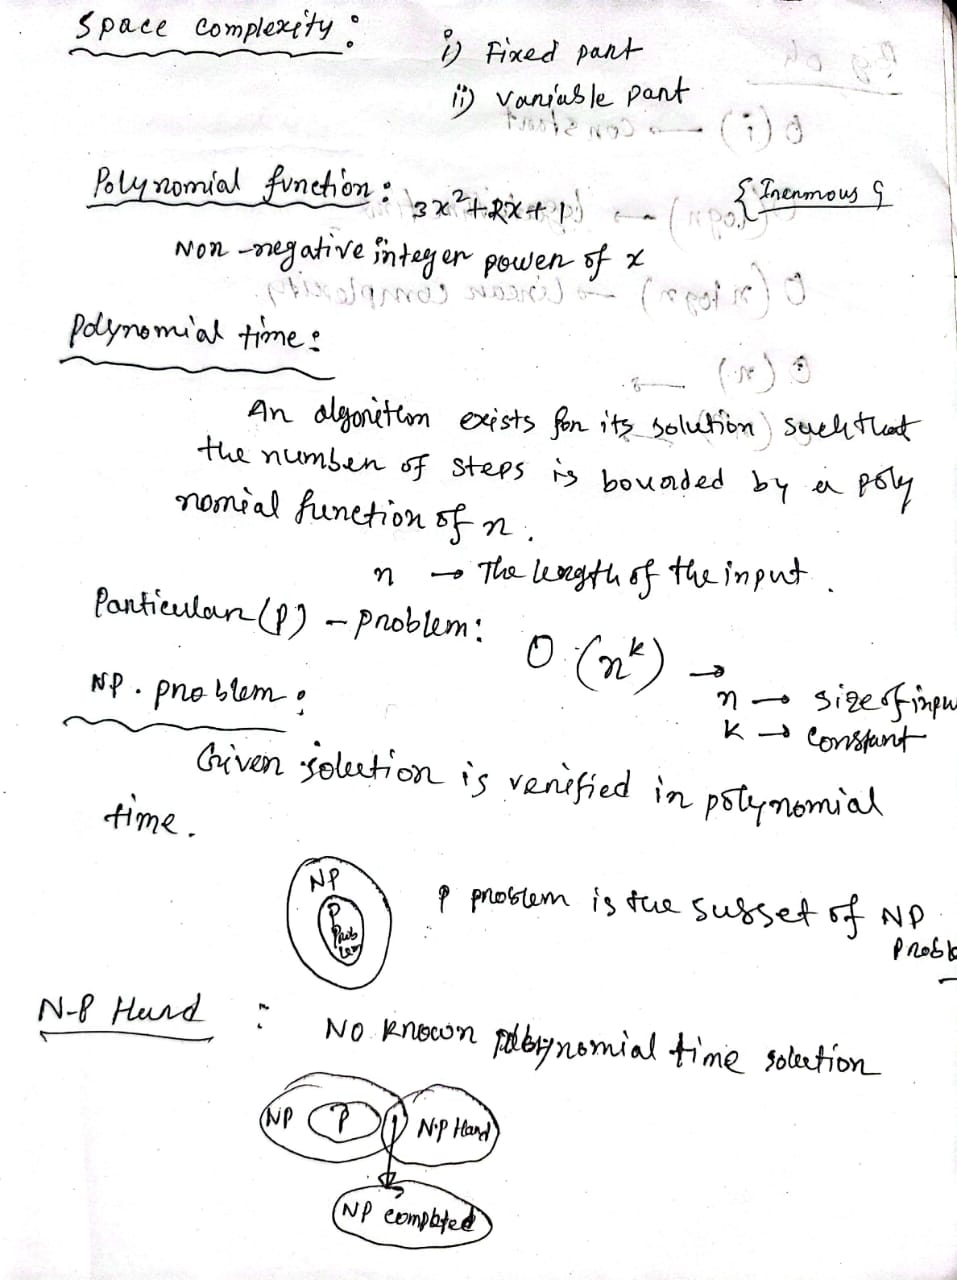 Space complexity :
i) Fixed part
ii) variable part
Polynomial function : 3x²+2x+1
Non-negative integer power of x
polynomial time :
An algorithm exists for its solution such that
the number of steps is bounded by a poly
nomial function of n.
n → The length of the input.
Particular (p) - problem : O (n^k) →
n → size of inpu
k → constant
NP . problem :
Given solution is verified in polynomial
time.
NP
P
Prob
lem
P problem is the subset of NP
Probl
N-P Hard : No known polynomial time solution
NP P N.P Hard
NP completed